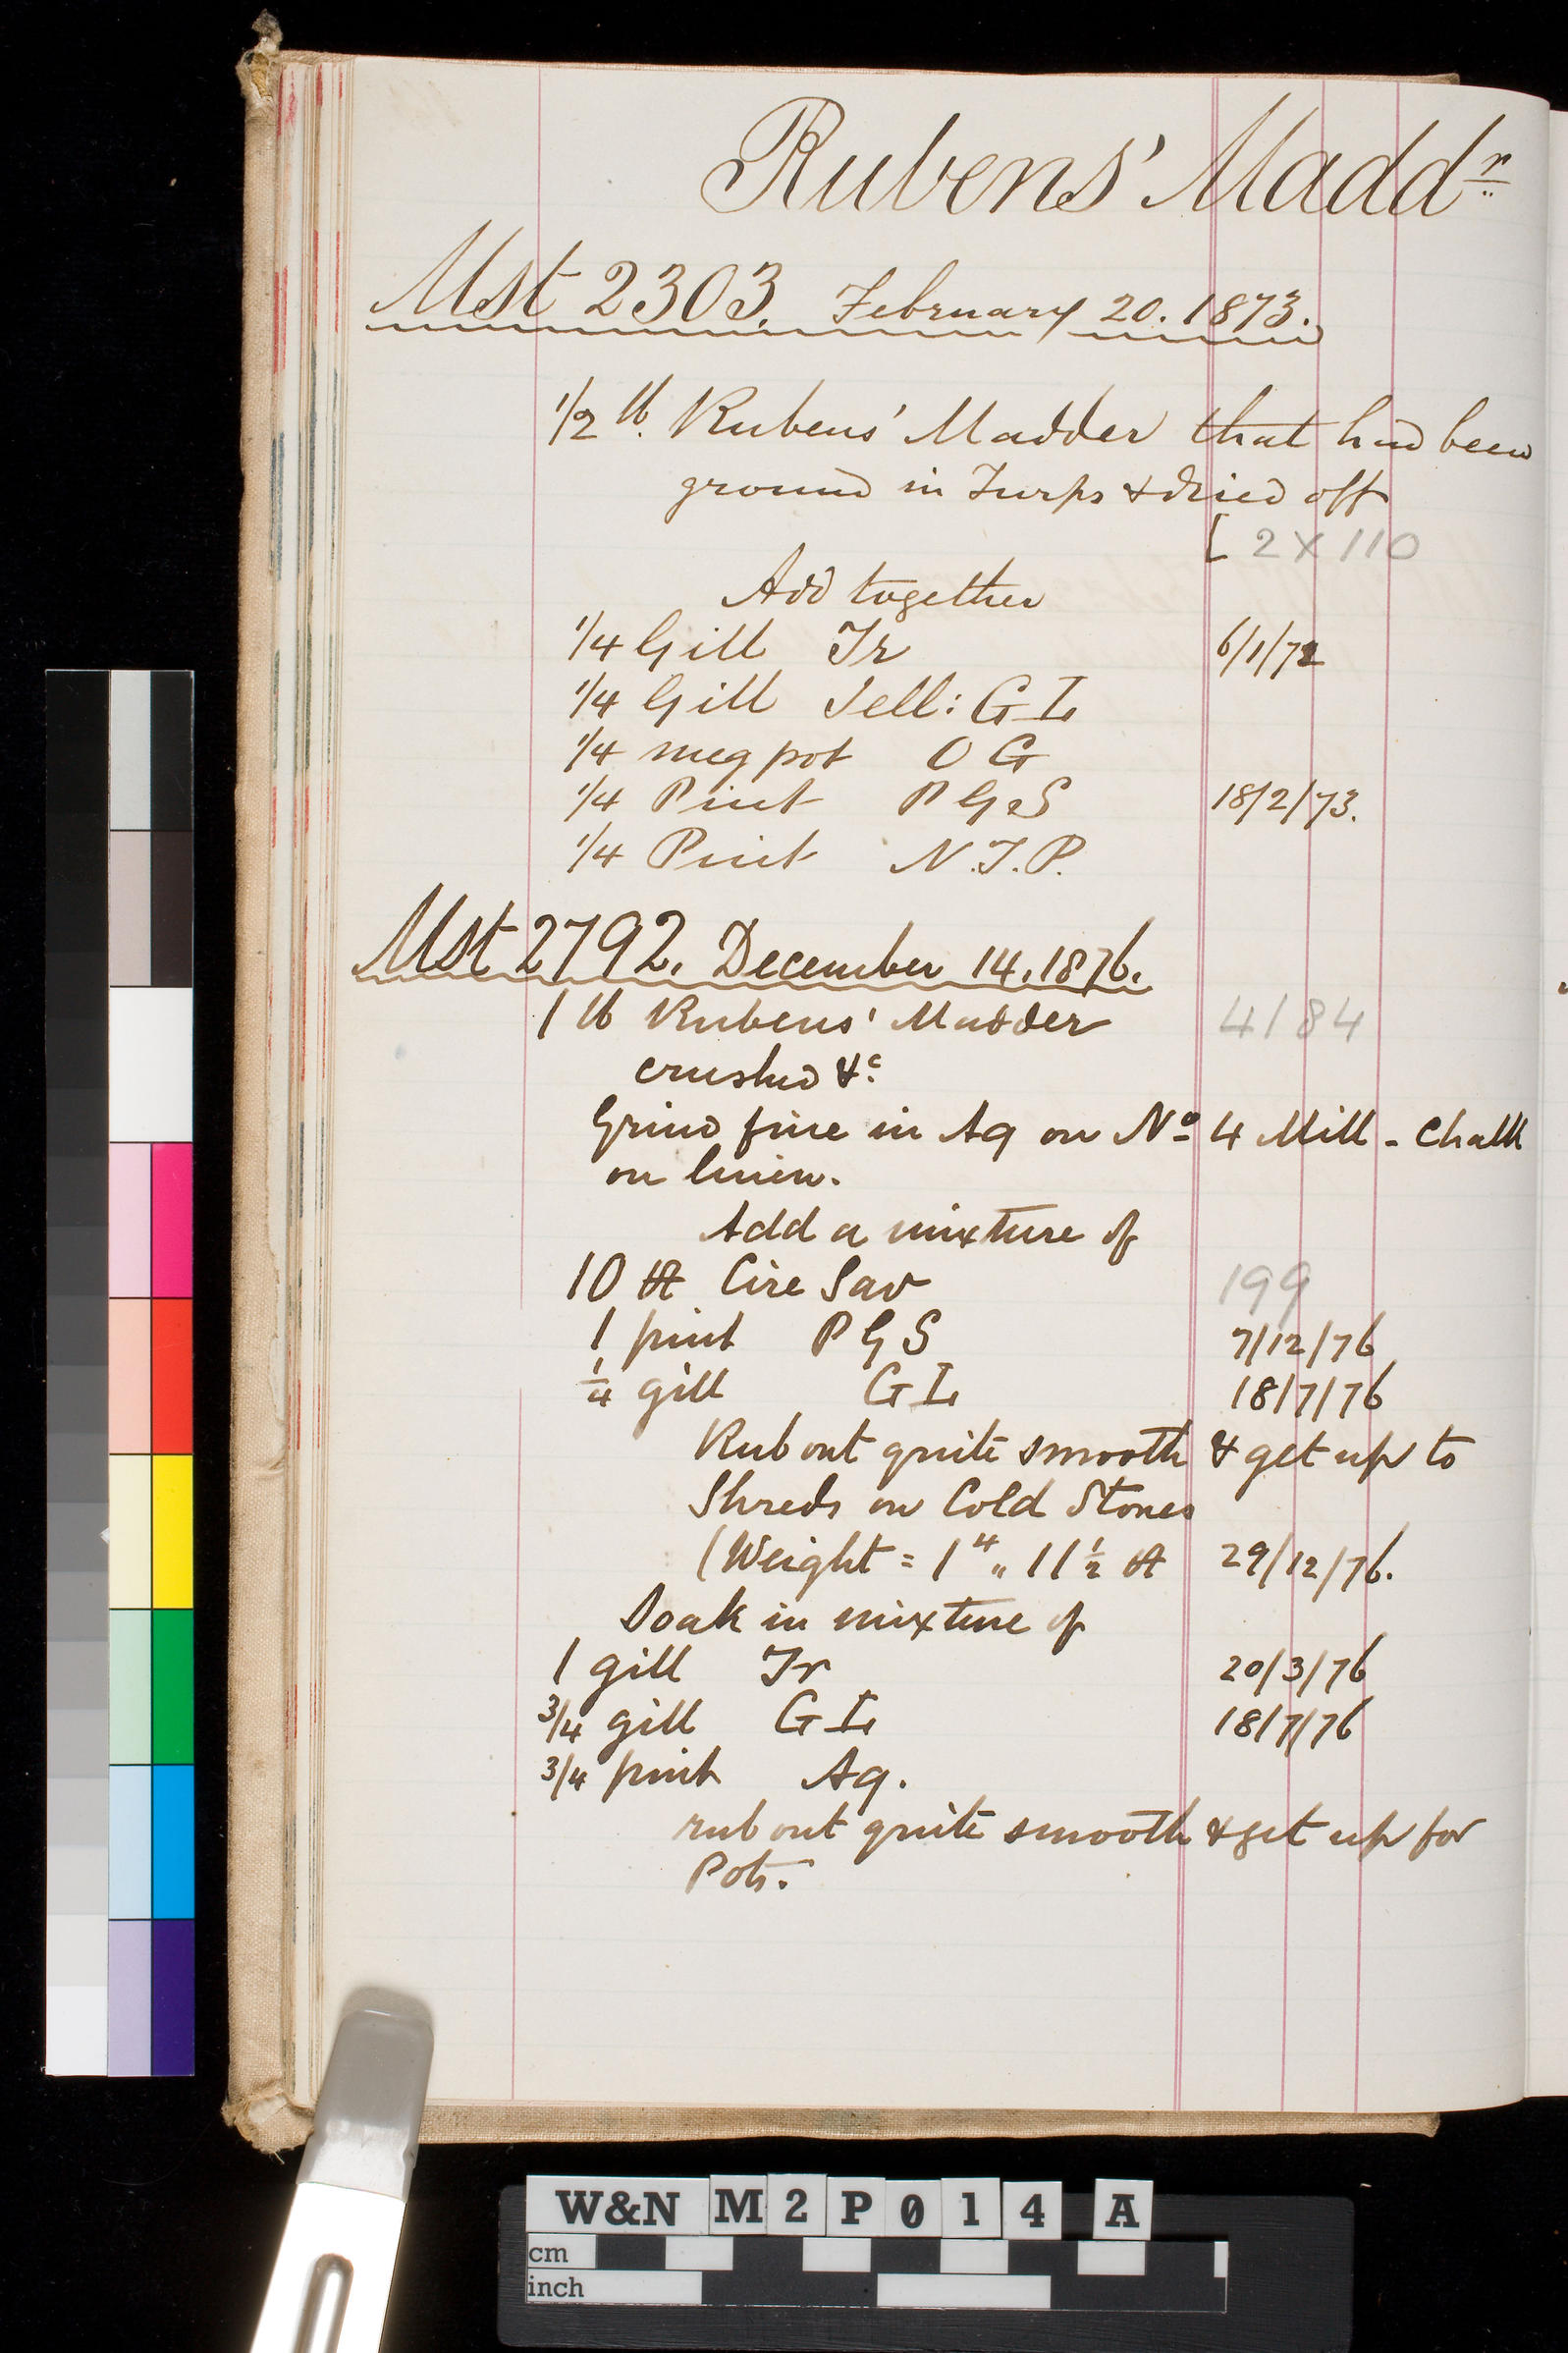 Rubens' Maddr
Mst 2303. February 20. 1873.
1/2 lb. Rubens' Madder that had been
ground in Turps & dried off
[ 2 X 110
Add together
1/4 Gill Tr 6/1/72
1/4 Gill Jell: GL
1/4 meg pot O G
1/4 Pint P G S 18/2/73.
1/4 Pint N.T.P.
Mst 2792. December 14. 1876.
1 lb Rubens' Madder 4184
crushed &c.
Grind fine in Aq on No 4 Mill - Chalk
on linen.
Add a mixture of
10 Cire Sav 199
1 pint P G S 7/12/76
1/4 gill GL 18/7/76
Rub out quite smooth & get up to
Shreds on Cold Stones
(Weight = 1 " 11 1/2 29/12/76.
Soak in mixture of
1 gill Tr 20/3/76
3/4 gill GL 18/7/76
3/4 pint Aq.
rub out quite smooth & get up for
Pots.
W&N M2P014 A
cm
inch